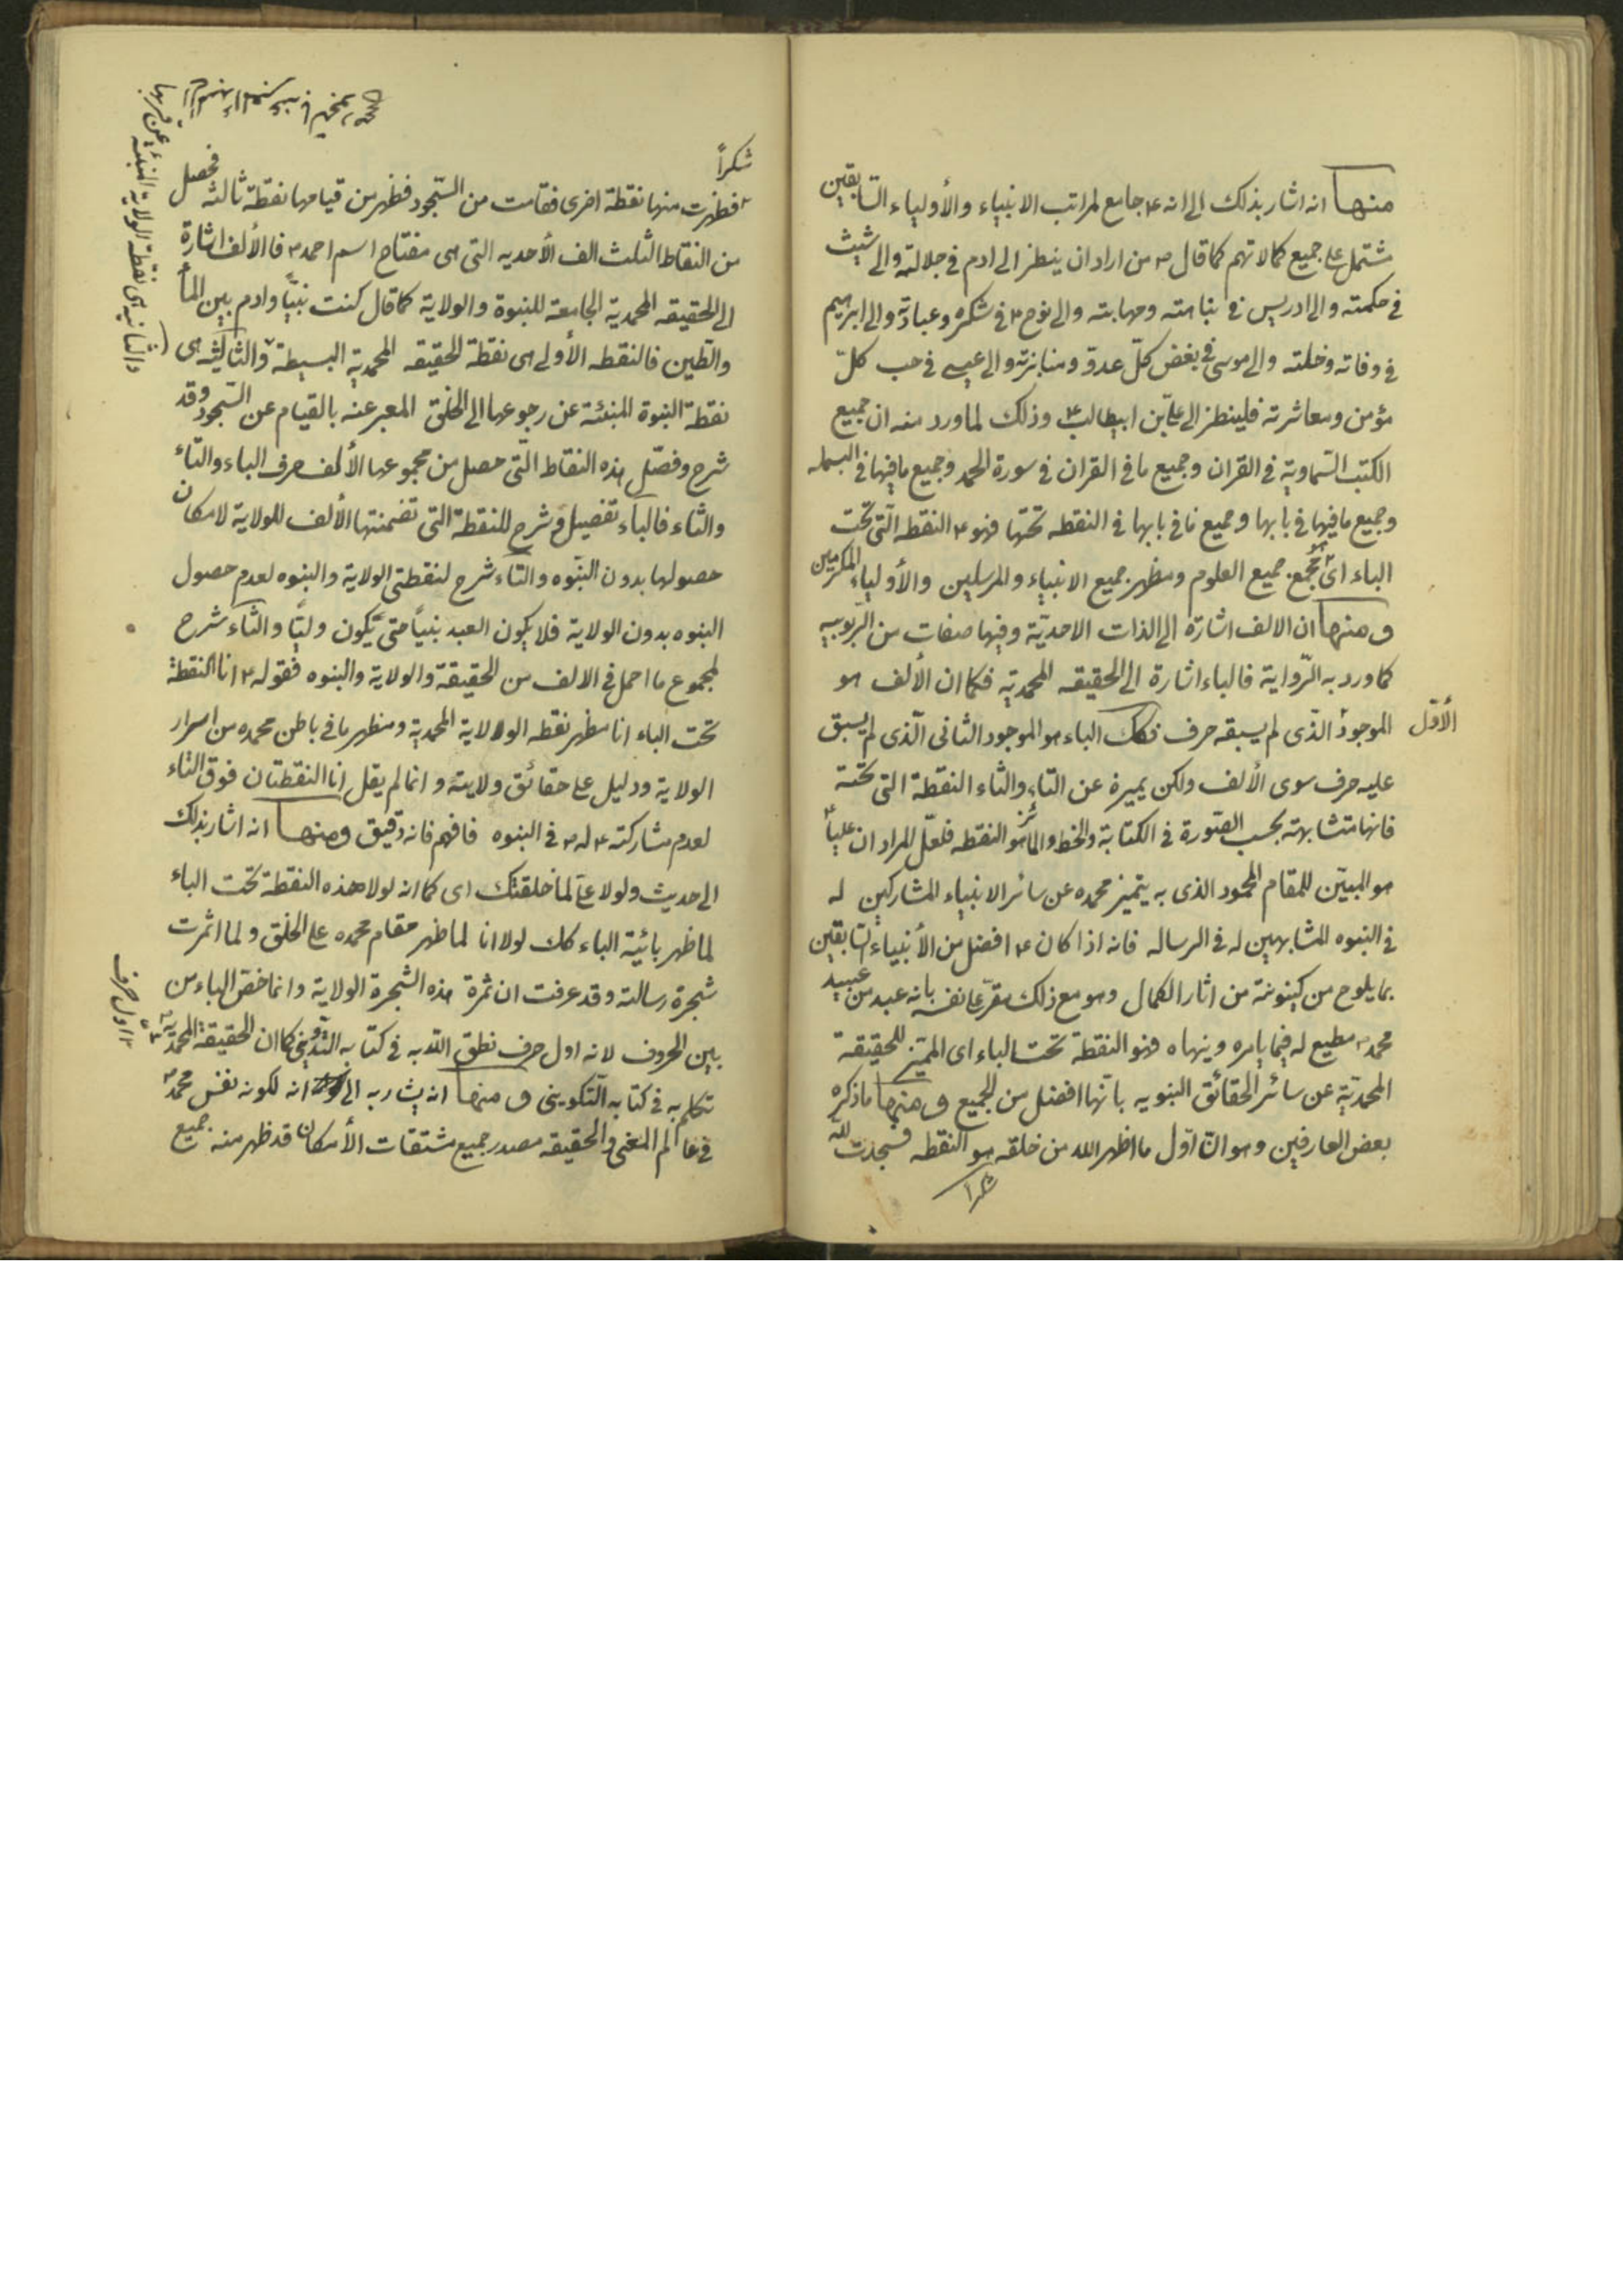 منها انه اشار بذلك الى انه ع جامع لمراتب الانبياء والأولياء السابقين
مشتمل على جميع كمالاتهم كما قال ص من اراد ان ينظر الى ادم فى جلالته والى شيث
فى حكمته والى ادريس فى نباهته ومهابته والى نوح ع فى شكره وعبادته والى ابرهيم
فى وفائه وخلته والى موسى فى بغض كلّ عدوّ ومنابزته والى عيسى فى حب كلّ
مؤمن ومعاشرته فلينظر الى علىّ بن ابيطالب ع وذلك لما ورد منه ان جميع
الكتب السّماوية فى القران وجميع ما فى القران فى سورة الحمد وجميع ما فيها فى البسمله
وجميع ما فيها فى بابها وجميع ما فى بابها فى النقطه تحتها فهو ع النقطه الّتى تحت
الباء اى مجمع جميع العلوم ومظهر جميع الانبياء والمرسلين والأولياء المكرمين
ومنها ان الالف اشارة الى الذات الاحديّة وفيها صفات من الرّبوبيه
كما ورد به الرّواية فالباء اشارة الى الحقيقه المحمديّه فكما ان الألف هو
الموجود الّذى لم يسبقه حرف فكك الباء هو الموجود الثانى الّذى لم يسبق
الأوّل
عليه حرف سوى الألف ولكن يميزه عن التاء والثاء النقطة التى تحته
فانها متشابهة بحسب الصّورة فى الكتابة والخط والمائز هو النقطه فلعلّ المراد ان علياً ع
هو المبيّن للمقام المحمود الذى به يتميز محمد ص عن سائر الانبياء المشاركين له
فى النبوه المشابهين له فى الرساله فانه اذا كان ع افضل من الأنبياء السّابقين
بما يلوح من كينونته من اثار الكمال وهو مع ذلك مقرّ على نفسه بانه عبد من عبيد
محمد ص مطيع له فيما يامره وينهاه فهو النقطة تحت الباء اى المميّز للحقيقة
المحمديّة عن سائر الحقائق النبويه بانّها افضل من الجميع ومنها ما ذكره
بعض العارفين وهو انّ اوّل ما اظهر الله من خلقه هو النقطه فسجدت لله
شكراً
شكراً
فظهرت منها نقطة اخرى فقامت من السّجود فظهر من قيامها نقطة ثالثه فحصل
من النقاط الثلث الف الأحديه التى هى مفتاح اسم احمد ص فالألف اشارة
الى الحقيقه المحمدية الجامعة للنبوة والولاية كما قال كنت نبيّاً وادم بين الماء
والطّين فالنقطه الأولى هى نقطة الحقيقه المحمدية البسيطة والثّالثه هى
والثانيه هى نقطة الولاية المنبئة عن قربها
نقطة النبوة المنبئة عن رجوعها الى الخلق المعبر عنه بالقيام عن السّجود وقد
شرح وفصّل هذه النقاط الّتى حصل من مجموعها الألف حرف الباء والتّاء
والثاء فالباء تفصيل وشرح للنقطة التى تضمنتها الألف للولاية لامكان
حصولها بدون النبّوه والتّاء شرح لنقطتى الولاية والنبوه لعدم حصول
النبوه بدون الولاية فلا يكون العبد نبياً حتى يكون وليّاً والثّاء شرح
لمجموع ما اجمل فى الالف من الحقيقة والولاية والنبوه فقوله ع انا النقطة
تحت الباء انا مظهر نقطه الولاية المحمدية ومظهر ما فى باطن محمد ص من اسرار
الولاية ودليل على حقائق ولايته وانما لم يقل انا النقطتان فوق التاء
لعدم مشاركته ع له ص فى النبوه فافهم فانه دقيق ومنها انه اشار بذلك
الى حديث ولولا علىّ لما خلقتك اى كما انه لولا هذه النقطة تحت الباء
لما ظهر بائية الباء كك لولا انا لما ظهر مقام محمد ص على الخلق ولما اثمرت
شجرة رسالته وقد عرفت ان ثمرة هذه الشجرة الولاية وانما خصّ الباء من
بين الحروف لانه اول حرف نطق اللّه به فى كتابه التدوينى كما ان الحقيقة المحمديه
اول حرف
تكلم به فى كتابه التّكوينى ومنها انه يشار به الى انه لكونه نفس محمد ص
فى عالم المعنى والحقيقه مصدر جميع مشتقات الأمكان قد ظهر منه جميع